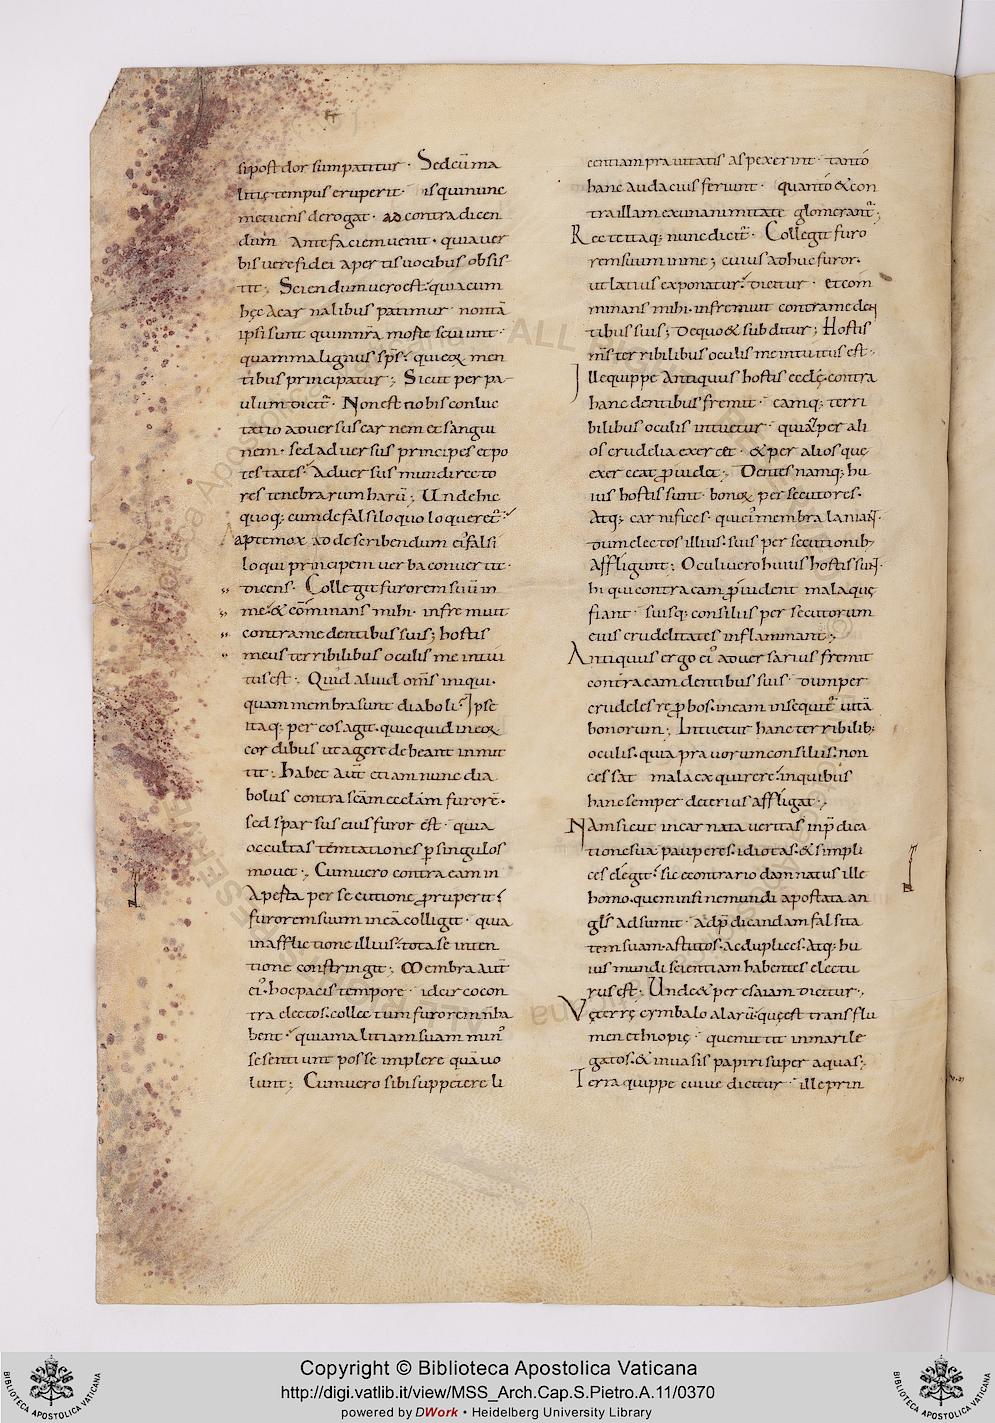 si post dorsum patitur · Sed cū ma
litię tempus eruperit · is qui nunc
metuens derogat · ad contra dicen
dum ante faciem uenit · quia uer
bis uere fidei apertis uocibus obsis
tit ; Sciendum uero est · quia cum
hęc a carnalibus patimur · non tā
ipsi sunt qui in nr̄a morte seuiunt ·
quam malignus sp̄s · qui eoꝝ men
tibus principatur ; Sicut per pa
ulum dicit̄ · Non est nobis conluc
tatio aduersus carnem et sangui
nem · sed aduersus principes et po
testates · Aduersus mundi recto
res tenebrarum harū ; Unde hic
quoq; cum de falsiloquo loqueret̄ ·
Aapte mox ad describendum ei' falsi
loqui principem uerba conuertit ·
dicens · Collegit furorem suū in
me · & cōminans mihi · infremuit
contra me dentibus suis ; hostis
meus terribilibus oculis me intui
tus est · Quid aliud om̄s iniqui ·
quam membra sunt diaboli · Ipse
itaq; per eos agit · quicquid in eoꝝ
cordibus ut agere debeant inmit
tit ; Habet aut̄ etiam nunc dia
bolus contra scām ecclām furorē ·
sed sparsus eius furor est · quia
occultas temtationes ꝑ singulos
mouet ; Cum uero contra eam in
aperta persecutione ꝓruperit ·
furorem suum in eā colligit · quia
in afflictione illius · tota se inten
tione constringit ; Membra aut̄
ei' · hoc pacis tempore idcirco con
tra electos · collectum furorem n̄ ha
bent · quia malitiam suam min'
se sentiunt posse implere quā uo
lunt ; Cum uero sibi suppetere li
centiam prauitatis aspexerint · tantó
hanc audacius feriunt · quantó & con
tra illam ex unanimitate glomerant̄ ;
Recte itaq; nunc dicit̄ · Collegit furo
rem suum in me ; cuius adhuc furor ·
ut latius exponatur · dicitur · et com
minans mihi · infremuit contra me den
tibus suis ; De quo & subditur ; Hostis
m̄s terribilibus oculis me intuitus est ;
Ille quippe antiquus hostis ecclę · contra
hanc dentibus fremit · eamq; terri
bilibus oculis intuetur · quia & per ali
os crudelia exercet · & per alios quę
exerceat ꝓuidet ; Dentes namq; hu
ius hostis sunt · bonoꝝ persecutores ·
Atq; carnifices · qui ei' membra laniant ·
dum electos illius · suis persecutionib;
affligunt ; Oculi uero huius hostis sunt ·
hi qui contra eam ꝓuident mala quę
fiant · suisq; consiliis persecutorum
eius crudelitates inflammant ;
Antiquus ergo ei' aduersarius fremit
contra eam dentibus suis · dum per
crudeles reꝓbos · in eam insequit̄ uitā
bonorum ; Intuetur hanc terribilib;
oculis · quia prauorum consiliis · non
cessat mala exquirere · in quibus
hanc semper deterius affligat ;
Nam sicut incarnata ueritas in p̄dica
tione sua pauperes · idiotas · & simpli
ces elegit · sic e contrario damnatus ille
homo · quem in fine mundi apostata an
gl̄s adsumit · ad p̄dicandam falsita
tem suam · astutos · ac duplices · atq; hu
ius mundi scientiam habentes electu
rus est · Unde & per esaiam dicitur ;
Vę terrę cymbalo alarū · quę est trans flu
men ethiopię · quę mittit in mari le
gatos · & in uasis papiri super aquas ;
Terra quippe cui ue dicitur · ille prin
Copyright © Biblioteca Apostolica Vaticana
http://digi.vatlib.it/view/MSS_Arch.Cap.S.Pietro.A.11/0370
powered by DWork • Heidelberg University Library
BIBLIOTECA APOSTOLICA VATICANA
BIBLIOTECA APOSTOLICA VATICANA